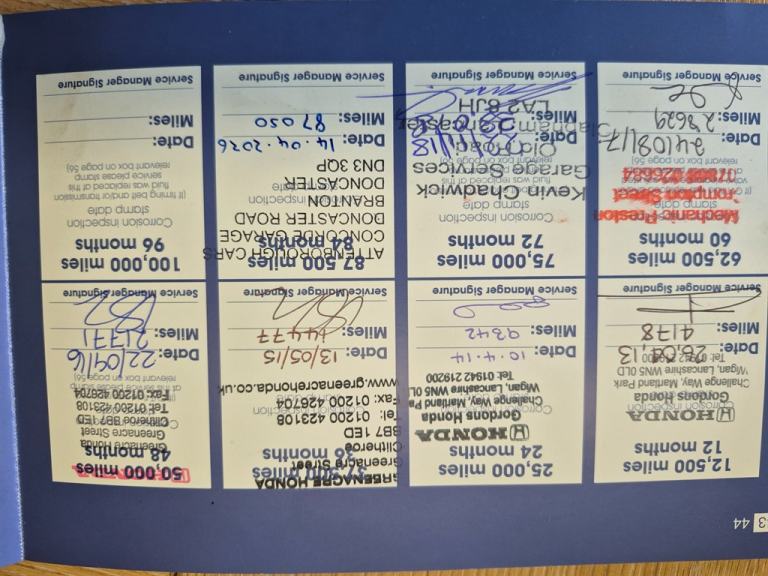 44
12,500 miles
12 months
HONDA
Gordons Honda
Challenge Way, Martland Park
Wigan, Lancashire WN5 0LD
Tel: 01942 219200
Date: 26,04,13
Miles: 4178
Service Manager Signature
25,000 miles
24 months
HONDA
Gordons Honda
Challenge Way, Martland Pa
Wigan, Lancashire WN5 0LD
Tel: 01942 219200
Date: 10.4.14
Miles: 9342
Service Manager Signature
37,500 miles
36 months
GREENACRE HONDA
Greenacre Street
Clitheroe
BB7 1ED
Tel: 01200 423108
Fax: 01200 426704
www.greenacrehonda.co.uk
Date: 13/05/15
Miles: 14477
Service Manager Signature
50,000 miles
48 months
HONDA
Greenacre Honda
Greenacre Street
Clitheroe BB7 1ED
Tel: 01200 423108
Fax: 01200 426704
relevant box on page 56)
Date: 22/09/16
Miles: 21771
Service Manager Signature
62,500 miles
60 months
Corrosion inspection
stamp date
Mechanic Preston
rompton Street
relevant box on page 56)
Date: 24/08/17
Miles: 28629
Service Manager Signature
75,000 miles
72 months
Corrosion inspection
stamp date
Kevin Chadwick
Garage Services
Old Road
Clapham Lancaster
LA2 8JH
Date:
Miles:
Service Manager Signature
87,500 miles
84 months
ATTENBOROUGH CARS
CONCORDE GARAGE
DONCASTER ROAD
BRANTON
DONCASTER
DN3 3QP
Date: 14.04.2026
Miles: 87050
Service Manager Signature
100,000 miles
96 months
Corrosion inspection
stamp date
(If timing belt and/or transmission
fluid was replaced at this
service please stamp
relevant box on page 56)
Date:
Miles:
Service Manager Signature